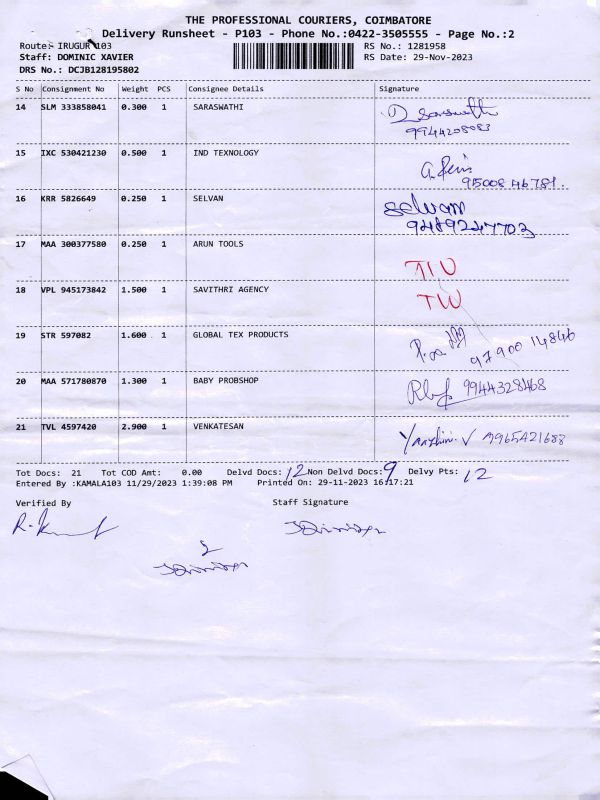 THE PROFESSIONAL COURIERS, COIMBATORE
Delivery Runsheet - P103 - Phone No.:0422-3505555 - Page No.:2
Route:- IRUGUR 103 RS No.: 1281958
Staff: DOMINIC XAVIER RS Date: 29-Nov-2023
DRS No.: DCJB128195802
S No Consignment No Weight PCS Consignee Details Signature
14 SLM 333858041 0.300 1 SARASWATHI
9944208083
15 IXC 530421230 0.500 1 IND TEXNOLOGY
9500846781.
16 KRR 5826649 0.250 1 SELVAN selvam
9489247703
17 MAA 300377580 0.250 1 ARUN TOOLS
18 VPL 945173842 1.500 1 SAVITHRI AGENCY
19 STR 597082 1.600 1 GLOBAL TEX PRODUCTS
97900 14846
20 MAA 571780870 1.300 1 BABY PROBSHOP 9944328468
21 TVL 4597420 2.900 1 VENKATESAN 9965421688
Tot Docs: 21 Tot COD Amt: 0.00 Delvd Docs: 12 Non Delvd Docs: 9 Delvy Pts: 12
Entered By :KAMALA103 11/29/2023 1:39:08 PM Printed On: 29-11-2023 16:17:21
Verified By Staff Signature